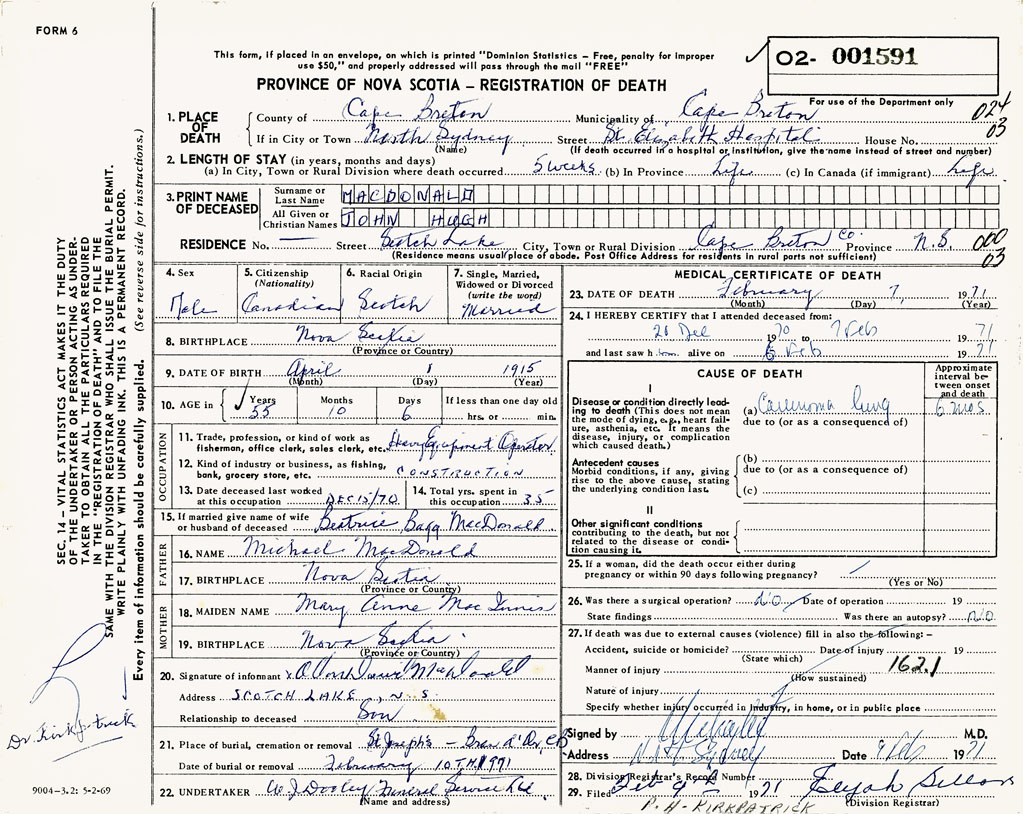 FORM 6
This form, if placed in an envelope, on which is printed "Dominion Statistics – Free, penalty for improper
use $50," and properly addressed will pass through the mail "FREE"
02- 001591
PROVINCE OF NOVA SCOTIA – REGISTRATION OF DEATH
For use of the Department only
024
03
1. PLACE OF DEATH
County of Cape Breton Municipality of Cape Breton
If in City or Town North Sydney Street St. Elizabeth Hospital House No.
(Name) (If death occurred in a hospital or institution, give the name instead of street and number)
2. LENGTH OF STAY (in years, months and days)
(a) In City, Town or Rural Division where death occurred 5 weeks (b) In Province Life (c) In Canada (if immigrant) Life
3. PRINT NAME OF DECEASED
Surname or Last Name MACDONALD
All Given or Christian Names JOHN HUGH
RESIDENCE No. — Street Scotch Lake City, Town or Rural Division Cape Breton Co. Province N.S.
000
03
(Residence means usual place of abode. Post Office Address for residents in rural parts not sufficient)
4. Sex
Male
5. Citizenship
(Nationality)
Canadian
6. Racial Origin
Scotch
7. Single, Married,
Widowed or Divorced
(write the word)
Married
8. BIRTHPLACE Nova Scotia
(Province or Country)
9. DATE OF BIRTH April 1 1915
(Month) (Day) (Year)
10. AGE in
Years
55
Months
10
Days
6
If less than one day old
hrs. or min.
OCCUPATION
11. Trade, profession, or kind of work as
fisherman, office clerk, sales clerk, etc. Heavy Equipment Operator
12. Kind of industry or business, as fishing,
bank, grocery store, etc. CONSTRUCTION
13. Date deceased last worked
at this occupation DEC 15/70
14. Total yrs. spent in
this occupation 35
15. If married give name of wife
or husband of deceased Beatrice Bagg MacDonald
FATHER
16. NAME Michael MacDonald
17. BIRTHPLACE Nova Scotia
(Province or Country)
MOTHER
18. MAIDEN NAME Mary Anne MacInnis
19. BIRTHPLACE Nova Scotia
(Province or Country)
20. Signature of informant x MacDonald
Address SCOTCH LAKE, N.S.
Relationship to deceased Son
21. Place of burial, cremation or removal St. Joseph's – Bras d'Or, CB
Date of burial or removal February 10TH 1971
22. UNDERTAKER W. J. Dooley Funeral Service Ltd.
(Name and address)
MEDICAL CERTIFICATE OF DEATH
23. DATE OF DEATH February 7, 1971
(Month) (Day) (Year)
24. I HEREBY CERTIFY that I attended deceased from:
28 Dec 1970 to 7 Feb 1971
and last saw him alive on 6 Feb 1971
CAUSE OF DEATH
Approximate
interval be-
tween onset
and death
I
Disease or condition directly lead-
ing to death (This does not mean
the mode of dying, e.g., heart fail-
ure, asthenia, etc. It means the
disease, injury, or complication
which caused death.)
(a) Carcinoma lung 6 mos
due to (or as a consequence of)
Antecedent causes
Morbid conditions, if any, giving
rise to the above cause, stating
the underlying condition last.
(b)
due to (or as a consequence of)
(c)
II
Other significant conditions
contributing to the death, but not
related to the disease or condi-
tion causing it.
25. If a woman, did the death occur either during
pregnancy or within 90 days following pregnancy?
(Yes or No)
26. Was there a surgical operation? NO Date of operation 19
State findings Was there an autopsy? NO
27. If death was due to external causes (violence) fill in also the following: –
Accident, suicide or homicide? Date of injury 19
(State which)
Manner of injury 162.1
(How sustained)
Nature of injury
Specify whether injury occurred in Industry, in home, or in public place
Signed by M.D.
Address Nth Sydney Date 9 Feb 1971
28. Division Registrar's Record Number
29. Filed Feb 9th 1971
P. H. KIRKPATRICK
(Division Registrar)
SEC. 14 – VITAL STATISTICS ACT MAKES IT THE DUTY
OF THE UNDERTAKER OR PERSON ACTING AS UNDER-
TAKER TO OBTAIN ALL THE PARTICULARS REQUIRED
IN THE "REGISTRATION OF DEATH" AND TO FILE THE
SAME WITH THE DIVISION REGISTRAR WHO SHALL ISSUE THE BURIAL PERMIT.
WRITE PLAINLY WITH UNFADING INK. THIS IS A PERMANENT RECORD.
Every item of information should be carefully supplied. (See reverse side for instructions.)
Dr. Kirkpatrick
9004-3.2: 5-2-69